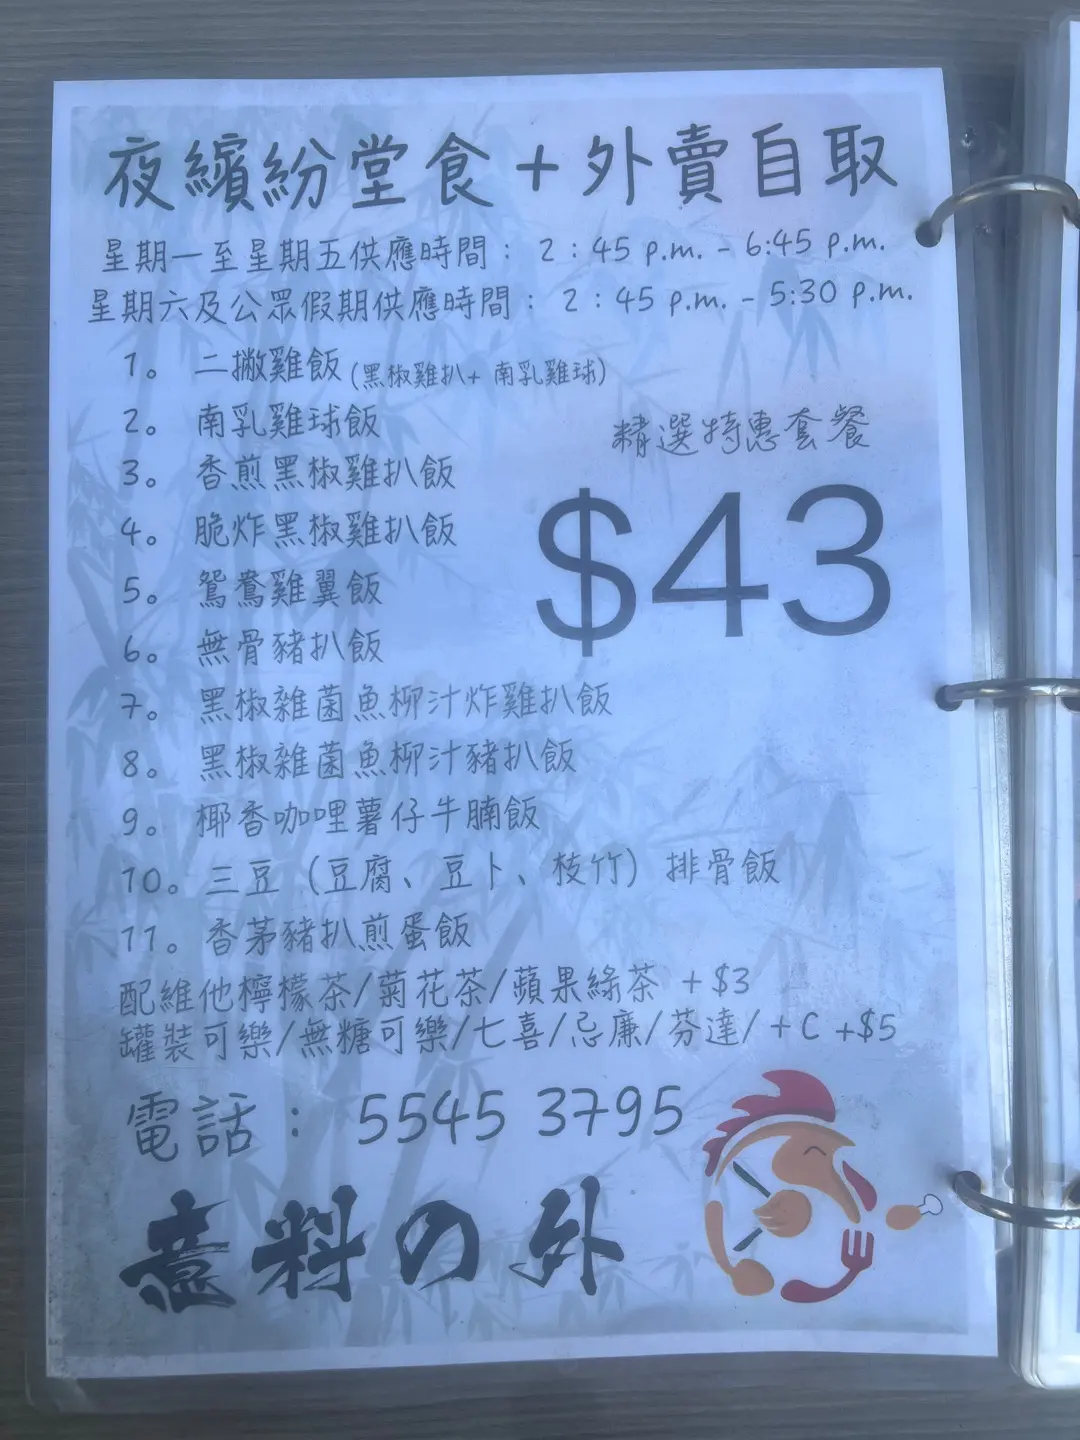 夜繽紛堂食+外賣自取
星期一至星期五供應時間： 2：45 p.m. - 6:45 p.m.
星期六及公眾假期供應時間： 2：45 p.m. - 5:30 p.m.
1。 二撇雞飯 (黑椒雞扒+ 南乳雞球)
2。 南乳雞球飯
精選特惠套餐
3。 香煎黑椒雞扒飯
$43
4。 脆炸黑椒雞扒飯
5。 鴛鴦雞翼飯
6。 無骨豬扒飯
7。 黑椒雜菌魚柳汁炸雞扒飯
8。 黑椒雜菌魚柳汁豬扒飯
9。 椰香咖哩薯仔牛腩飯
10。三豆（豆腐、豆卜、枝竹）排骨飯
11。香茅豬扒煎蛋飯
配維他檸檬茶/菊花茶/蘋果綠茶 +$3
罐裝可樂/無糖可樂/七喜/忌廉/芬達/+C +$5
電話： 5545 3795
意料の外